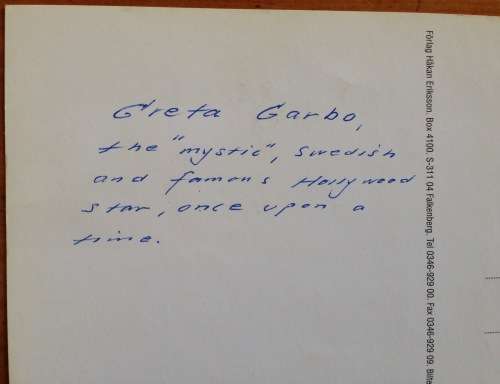 Greta Garbo,
the "mystic", swedish
and famous Hollywood
star, once upon a
time.
Förlag Håkan Eriksson. Box 4100. S-311 04 Falkenberg. Tel 0346-929 00. Fax 0346-929 09.